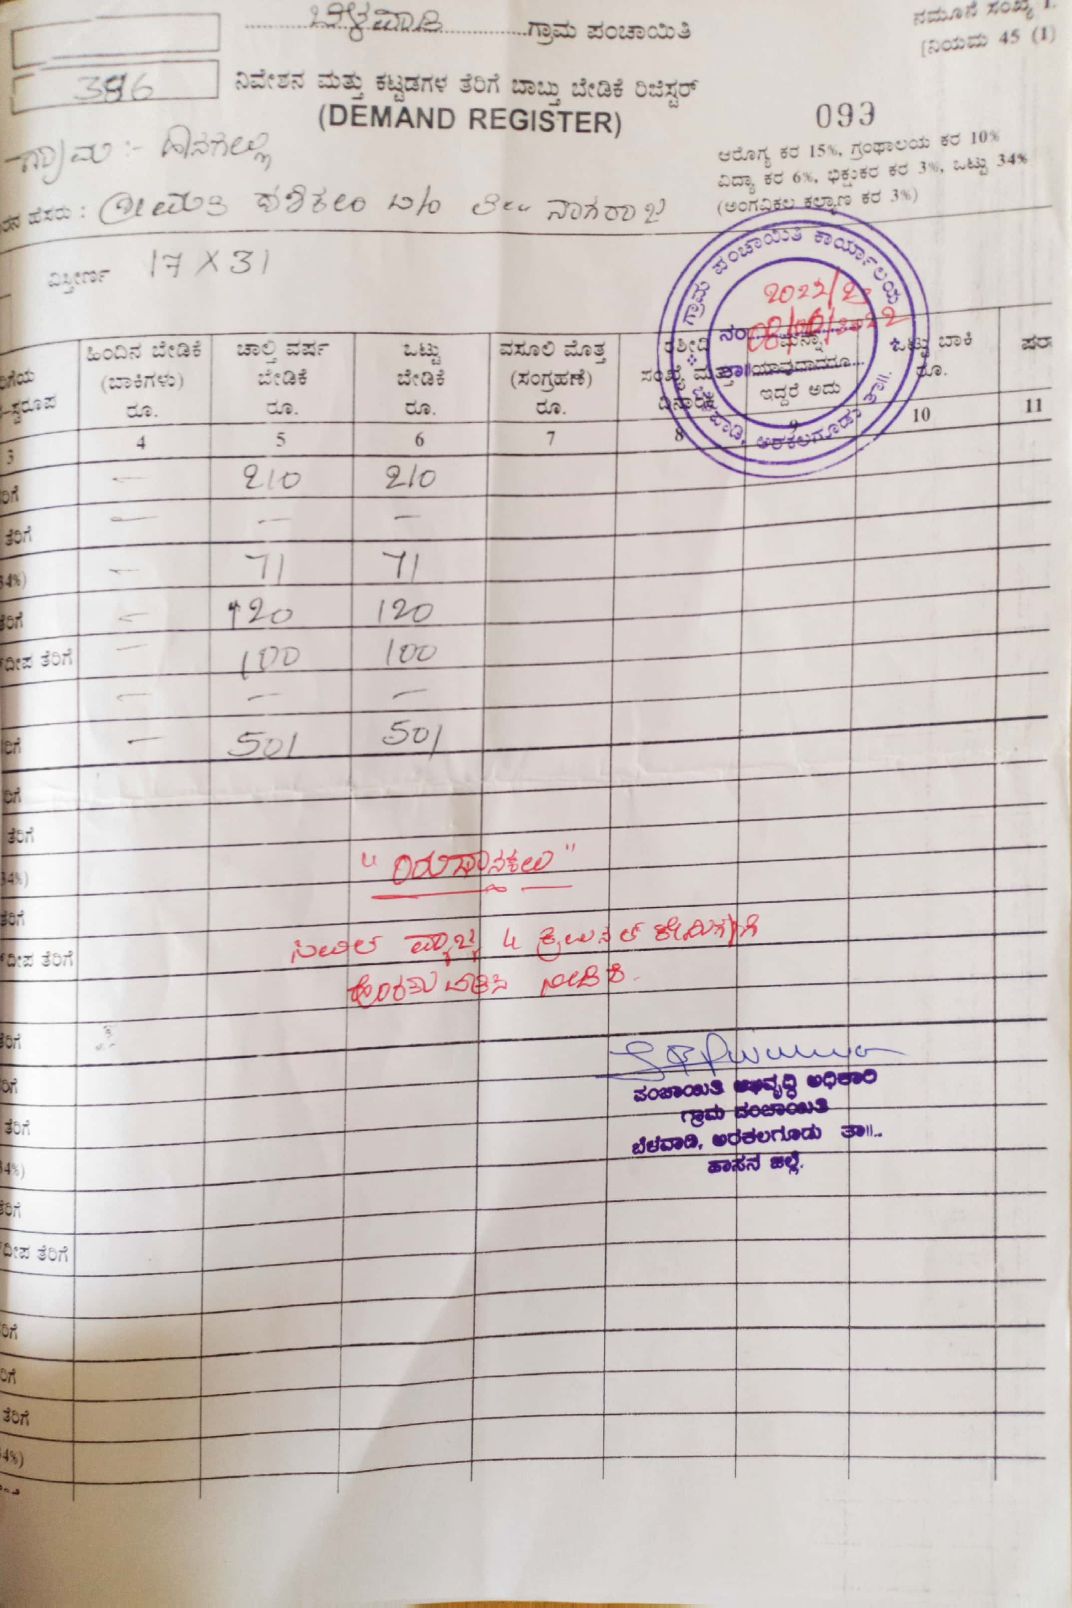 ಬೆಳವಾಡಿ ಗ್ರಾಮ ಪಂಚಾಯಿತಿ
ನಮೂನೆ ಸಂಖ್ಯೆ 1.
[ನಿಯಮ 45 (1)
386
ನಿವೇಶನ ಮತ್ತು ಕಟ್ಟಡಗಳ ತೆರಿಗೆ ಬಾಬ್ತು ಬೇಡಿಕೆ ರಿಜಿಸ್ಟರ್
(DEMAND REGISTER)
093
ಗ್ರಾಮ :-
ಆರೋಗ್ಯ ಕರ 15%, ಗ್ರಂಥಾಲಯ ಕರ 10%
ವಿದ್ಯಾ ಕರ 6%, ಭಿಕ್ಷುಕರ ಕರ 3%, ಒಟ್ಟು 34%
(ಅಂಗವಿಕಲ ಕಲ್ಯಾಣ ಕರ 3%)
ರನ ಹೆಸರು : ಶ್ರೀಮತಿ ಶಶಿಕಲಾ ನಾಗರಾಜ
ವಿಸ್ತೀರ್ಣ 17 X 31
ಗ್ರಾಮ ಪಂಚಾಯಿತಿ ಕಾರ್ಯಾಲಯ
ನಂ 2022/23
ತಾ॥
ಬೆಳವಾಡಿ, ಅರಕಲಗೂಡು ತಾ॥.
ಹಿಂದಿನ ಬೇಡಿಕೆ (ಬಾಕಿಗಳು) ರೂ.
ಚಾಲ್ತಿ ವರ್ಷ ಬೇಡಿಕೆ ರೂ.
ಒಟ್ಟು ಬೇಡಿಕೆ ರೂ.
ವಸೂಲಿ ಮೊತ್ತ (ಸಂಗ್ರಹಣೆ) ರೂ.
ರಶೀದಿ ಸಂಖ್ಯೆ ಮತ್ತು ದಿನಾಂಕ
ಮನ್ನಾ ಯಾವುದಾದರೂ ಇದ್ದರೆ ಅದು
ಒಟ್ಟು ಬಾಕಿ ರೂ.
ಷರಾ
3 4 5 6 7 8 9 10 11
ರಿಗೆ — 210 210
ತೆರಿಗೆ — — —
34%) — 71 71
ತೆರಿಗೆ — 120 120
ದೀಪ ತೆರಿಗೆ — 100 100
— — —
ರಿಗೆ — 501 501
ರಿಗೆ
ತೆರಿಗೆ
34%)
ತೆರಿಗೆ
ದೀಪ ತೆರಿಗೆ
"ದೃಢೀಕರಿಸಿದ ನಕಲು"
ಸಿವಿಲ್ ವ್ಯಾಜ್ಯ
ಹೊರತು ಪಡಿಸಿ ನೀಡಿದೆ.
ತೆರಿಗೆ
ರಿಗೆ
ತೆರಿಗೆ
34%)
ತೆರಿಗೆ
ದೀಪ ತೆರಿಗೆ
ಪಂಚಾಯಿತಿ ಅಭಿವೃದ್ಧಿ ಅಧಿಕಾರಿ
ಗ್ರಾಮ ಪಂಚಾಯಿತಿ
ಬೆಳವಾಡಿ, ಅರಕಲಗೂಡು ತಾ॥.
ಹಾಸನ ಜಿಲ್ಲೆ.
ರಿಗೆ
ರಿಗೆ
ತೆರಿಗೆ
34%)